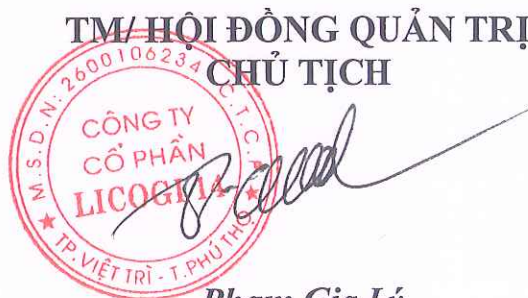 TM/ HỘI ĐỒNG QUẢN TRỊ
CHỦ TỊCH
M.S.D.N: 2600106234 C.T.C.P
CÔNG TY
CỔ PHẦN
LICOGI 14
TP.VIỆT TRÌ - T.PHÚ THỌ
Phạm Gia Lý